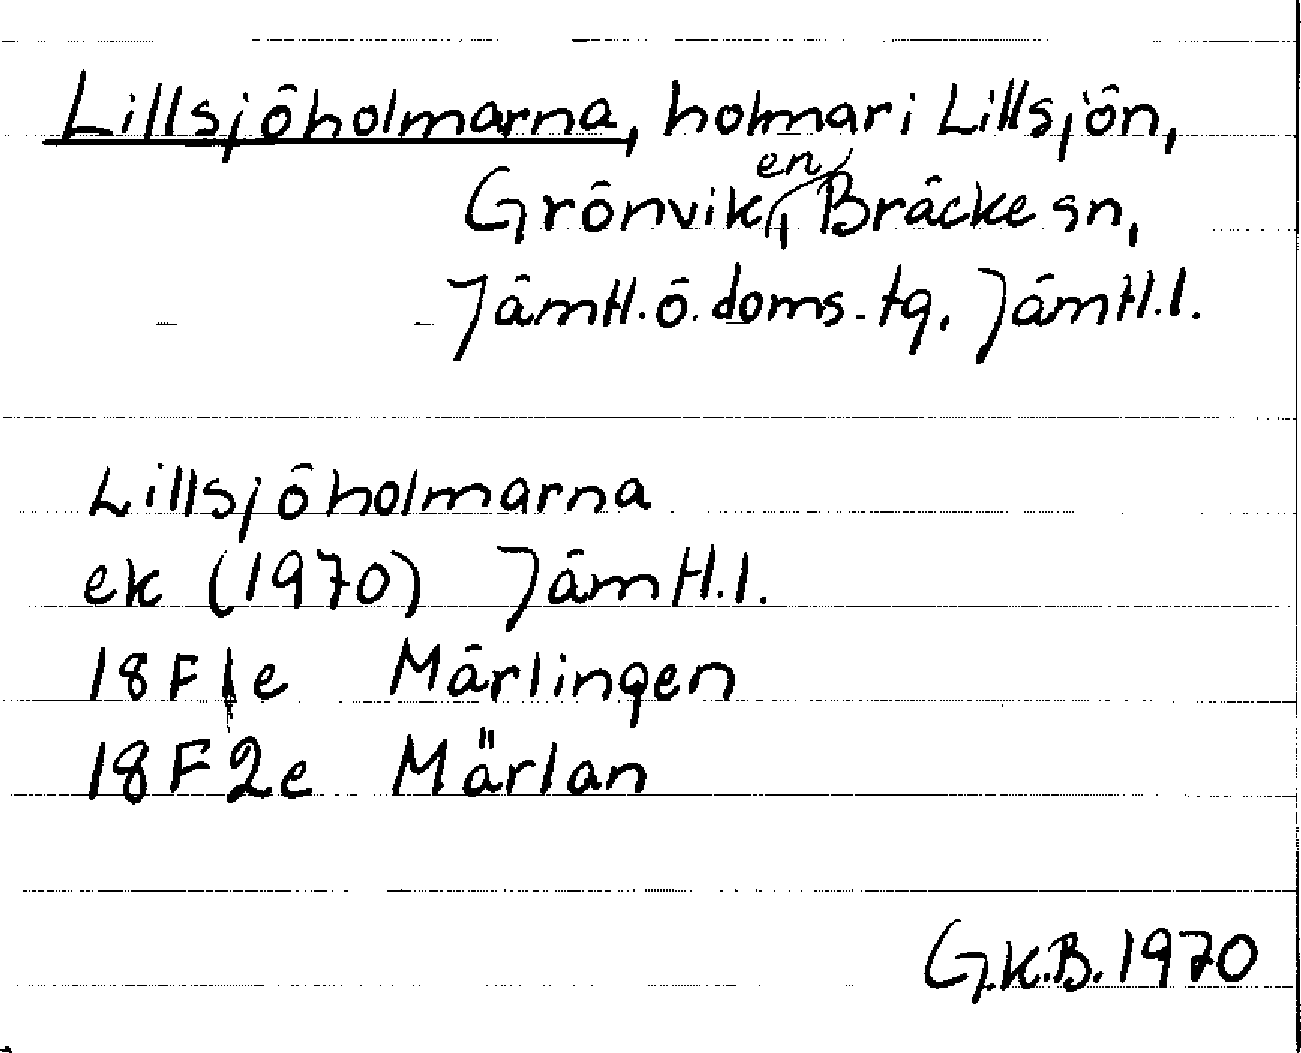 Lillsjöholmarna, holmar i Lillsjön,
Grönviken, Bräcke sn,
Jämtl. ö. doms. tg. Jämtl. l.
Lillsjöholmarna
ek (1970) Jämtl. l.
18 F 1e Märlingen
18 F 2e Märlan
G.K.B. 1970